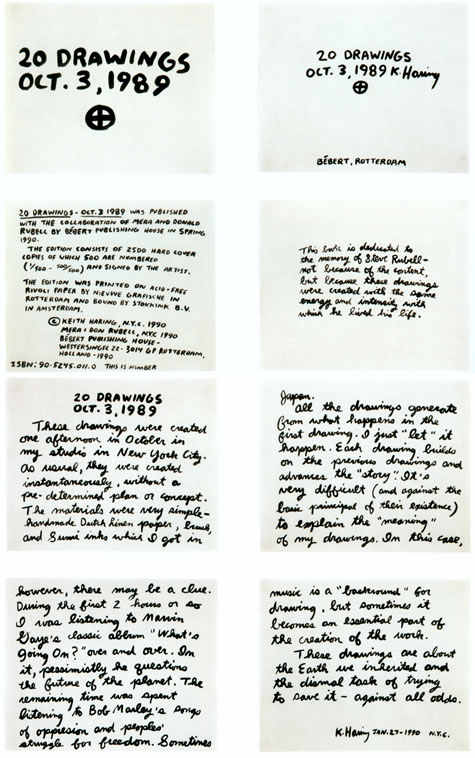 20 DRAWINGS
OCT. 3, 1989
20 DRAWINGS
OCT. 3, 1989 K. Haring
BÉBERT, ROTTERDAM
20 DRAWINGS - OCT. 3 1989 WAS PUBLISHED
WITH THE COLLABORATION OF MERA AND DONALD
RUBELL BY BÉBERT PUBLISHING HOUSE IN SPRING
1990.
THE EDITION CONSISTS OF 2500 HARD COVER
COPIES OF WHICH 500 ARE NUMBERED
(1/500 - 500/500) AND SIGNED BY THE ARTIST.
THE EDITION WAS PRINTED ON ACID-FREE
RIVOLI PAPER BY NIEUWE GRAFISCHE IN
ROTTERDAM AND BOUND BY STOKKINK B.V.
IN AMSTERDAM.
© KEITH HARING, N.Y.C. 1990
MERA + DON RUBELL, N.Y.C 1990
BÉBERT PUBLISHING HOUSE -
WESTERSINGEL 22 - 3014 GP ROTTERDAM,
HOLLAND - 1990
ISBN: 90-5245.011.0 THIS IS NUMBER
This book is dedicated to
the memory of Steve Rubell -
not because of the content,
but because these drawings
were created with the same
energy and intensity with
which he lived his life.
20 DRAWINGS
OCT. 3, 1989
These drawings were created
one afternoon in October in
my studio in New York City.
As usual, they were created
instantaneously, without a
pre-determined plan or concept.
The materials were very simple-
handmade Dutch linen paper, brush,
and Sumi inks which I got in
Japan.
All the drawings generate
from what happens in the
first drawing. I just "let" it
happen. Each drawing builds
on the previous drawings and
advances the "story". It's
very difficult (and against the
basic principal of their existence)
to explain the "meaning"
of my drawings. In this case,
however, there may be a clue.
During the first 2 hours or so
I was listening to Marvin
Gaye's classic album "What's
Going On?" over and over. In
it, pessimistly he questions
the future of the planet. The
remaining time was spent
listening to Bob Marley's songs
of oppresion and peoples'
struggle for freedom. Sometimes
music is a "background" for
drawing, but sometimes it
becomes an essential part of
the creation of the work.
These drawings are about
the Earth we inherited and
the dismal task of trying
to save it - against all odds.
K. Haring JAN. 27 - 1990 N.Y.C.